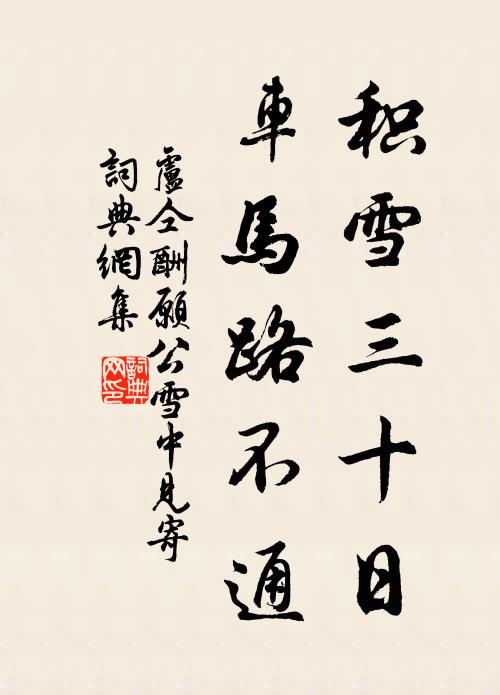 积雪三十日
車馬路不通
盧仝酬願公雪中見寄
詞典網集
詞典網印